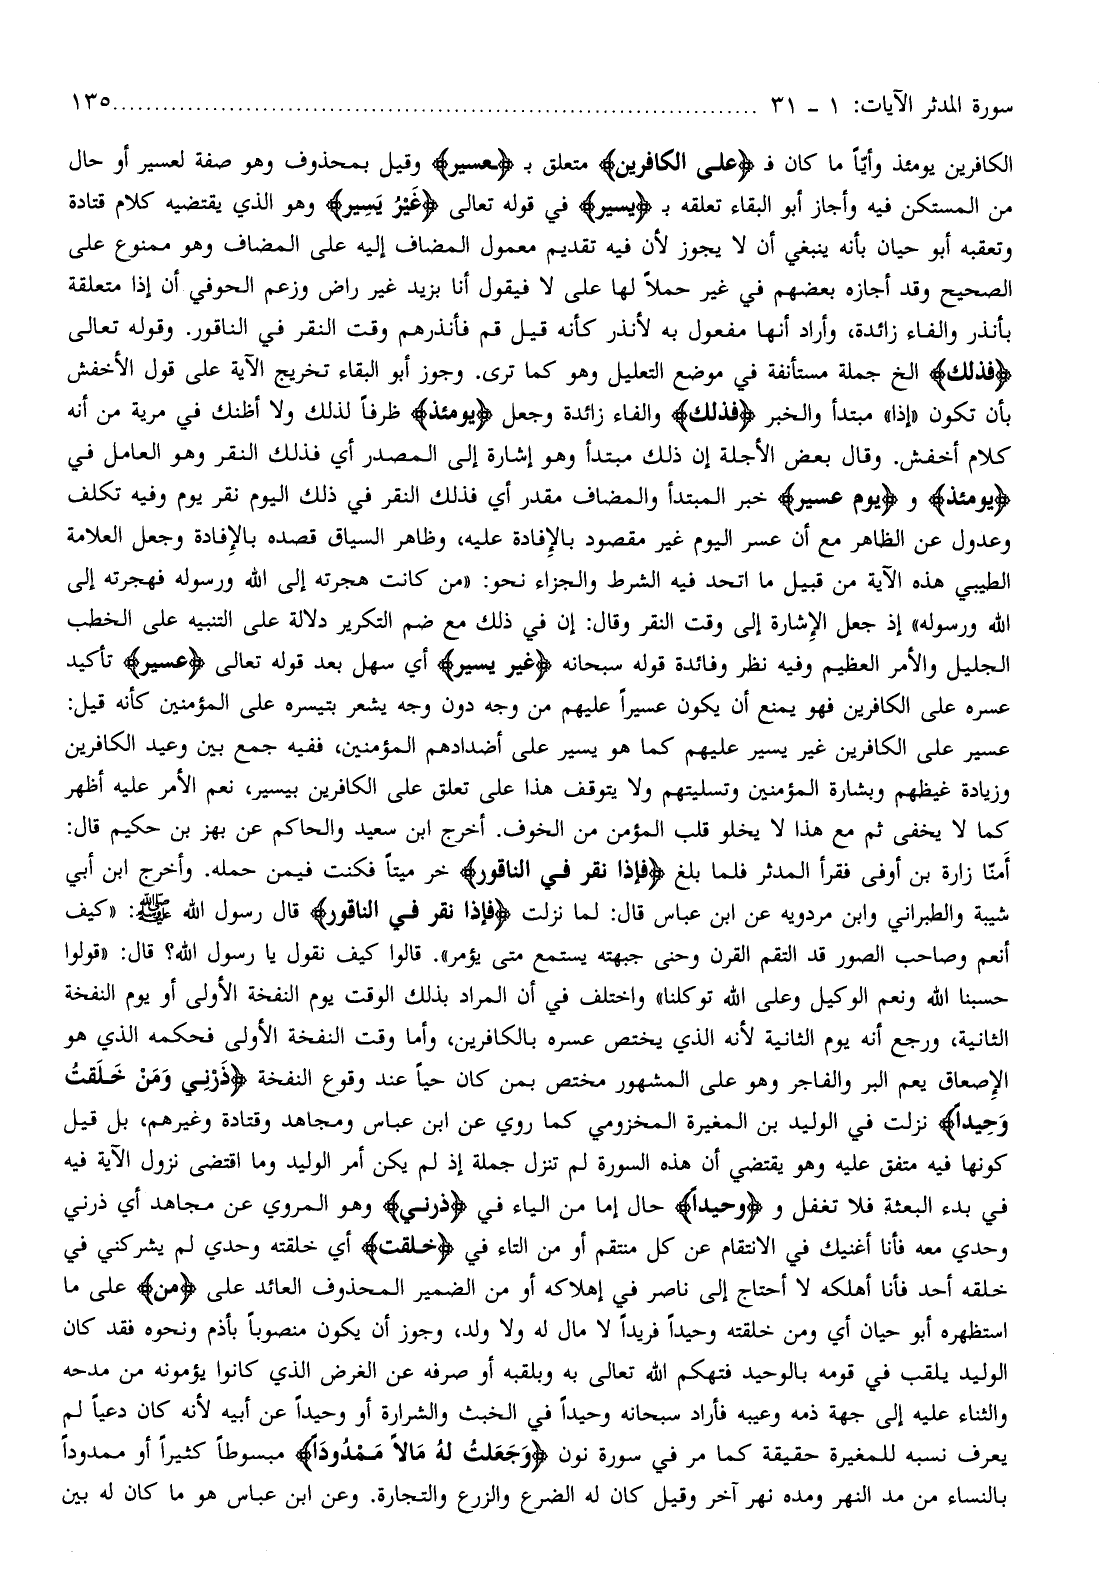 سورة المدثر الآيات: ١ - ٣١ ............................................................ ١٣٥
الكافرين يومئذ وأيّاً ما كان فـ ﴿على الكافرين﴾ متعلق بـ ﴿عسير﴾ وقيل بمحذوف وهو صفة لعسير أو حال
من المستكن فيه وأجاز أبو البقاء تعلقه بـ ﴿يسير﴾ في قوله تعالى ﴿غَيْرُ يَسِير﴾ وهو الذي يقتضيه كلام قتادة
وتعقبه أبو حيان بأنه ينبغي أن لا يجوز لأن فيه تقديم معمول المضاف إليه على المضاف وهو ممنوع على
الصحيح وقد أجازه بعضهم في غير حملاً لها على لا فيقول أنا بزيد غير راض وزعم الحوفي أن إذا متعلقة
بأنذر والفاء زائدة، وأراد أنها مفعول به لأنذر كأنه قيل قم فأنذرهم وقت النقر في الناقور. وقوله تعالى
﴿فذلك﴾ الخ جملة مستأنفة في موضع التعليل وهو كما ترى. وجوز أبو البقاء تخريج الآية على قول الأخفش
بأن تكون «إذا» مبتدأ والخبر ﴿فذلك﴾ والفاء زائدة وجعل ﴿يومئذ﴾ ظرفاً لذلك ولا أظنك في مرية من أنه
كلام أخفش. وقال بعض الأجلة إن ذلك مبتدأ وهو إشارة إلى المصدر أي فذلك النقر وهو العامل في
﴿يومئذ﴾ و ﴿يوم عسير﴾ خبر المبتدأ والمضاف مقدر أي فذلك النقر في ذلك اليوم نقر يوم وفيه تكلف
وعدول عن الظاهر مع أن عسر اليوم غير مقصود بالإفادة عليه، وظاهر السياق قصده بالإفادة وجعل العلامة
الطيبي هذه الآية من قبيل ما اتحد فيه الشرط والجزاء نحو: «من كانت هجرته إلى الله ورسوله فهجرته إلى
الله ورسوله» إذ جعل الإشارة إلى وقت النقر وقال: إن في ذلك مع ضم التكرير دلالة على التنبيه على الخطب
الجليل والأمر العظيم وفيه نظر وفائدة قوله سبحانه ﴿غير يسير﴾ أي سهل بعد قوله تعالى ﴿عسير﴾ تأكيد
عسره على الكافرين فهو يمنع أن يكون عسيراً عليهم من وجه دون وجه يشعر بتيسره على المؤمنين كأنه قيل:
عسير على الكافرين غير يسير عليهم كما هو يسير على أضدادهم المؤمنين، ففيه جمع بين وعيد الكافرين
وزيادة غيظهم وبشارة المؤمنين وتسليتهم ولا يتوقف هذا على تعلق على الكافرين بيسير، نعم الأمر عليه أظهر
كما لا يخفى ثم مع هذا لا يخلو قلب المؤمن من الخوف. أخرج ابن سعيد والحاكم عن بهز بن حكيم قال:
أَمنّا زارة بن أوفى فقرأ المدثر فلما بلغ ﴿فإذا نقر في الناقور﴾ خر ميتاً فكنت فيمن حمله. وأخرج ابن أبي
شيبة والطبراني وابن مردويه عن ابن عباس قال: لما نزلت ﴿فإذا نقر في الناقور﴾ قال رسول الله ﷺ: «كيف
أنعم وصاحب الصور قد التقم القرن وحنى جبهته يستمع متى يؤمر». قالوا كيف نقول يا رسول الله؟ قال: «قولوا
حسبنا الله ونعم الوكيل وعلى الله توكلنا» واختلف في أن المراد بذلك الوقت يوم النفخة الأولى أو يوم النفخة
الثانية، ورجع أنه يوم الثانية لأنه الذي يختص عسره بالكافرين، وأما وقت النفخة الأولى فحكمه الذي هو
الإصعاق يعم البر والفاجر وهو على المشهور مختص بمن كان حياً عند وقوع النفخة ﴿ذَرْنِي وَمَنْ خَلَقتُ
وَحِيداً﴾ نزلت في الوليد بن المغيرة المخزومي كما روي عن ابن عباس ومجاهد وقتادة وغيرهم، بل قيل
كونها فيه متفق عليه وهو يقتضي أن هذه السورة لم تنزل جملة إذ لم يكن أمر الوليد وما اقتضى نزول الآية فيه
في بدء البعثة فلا تغفل و ﴿وحيداً﴾ حال إما من الياء في ﴿ذرني﴾ وهو المروي عن مجاهد أي ذرني
وحدي معه فأنا أغنيك في الانتقام عن كل منتقم أو من التاء في ﴿خلقت﴾ أي خلقته وحدي لم يشركني في
خلقه أحد فأنا أهلكه لا أحتاج إلى ناصر في إهلاكه أو من الضمير المحذوف العائد على ﴿من﴾ على ما
استظهره أبو حيان أي ومن خلقته وحيداً فريداً لا مال له ولا ولد، وجوز أن يكون منصوباً بأذم ونحوه فقد كان
الوليد يلقب في قومه بالوحيد فتهكم الله تعالى به وبلقبه أو صرفه عن الغرض الذي كانوا يؤمونه من مدحه
والثناء عليه إلى جهة ذمه وعيبه فأراد سبحانه وحيداً في الخبث والشرارة أو وحيداً عن أبيه لأنه كان دعياً لم
يعرف نسبه للمغيرة حقيقة كما مر في سورة نون ﴿وَجَعَلتُ لهُ مَالاً مَمْدُودَاً﴾ مبسوطاً كثيراً أو ممدوداً
بالنساء من مد النهر ومده نهر آخر وقيل كان له الضرع والزرع والتجارة. وعن ابن عباس هو ما كان له بين